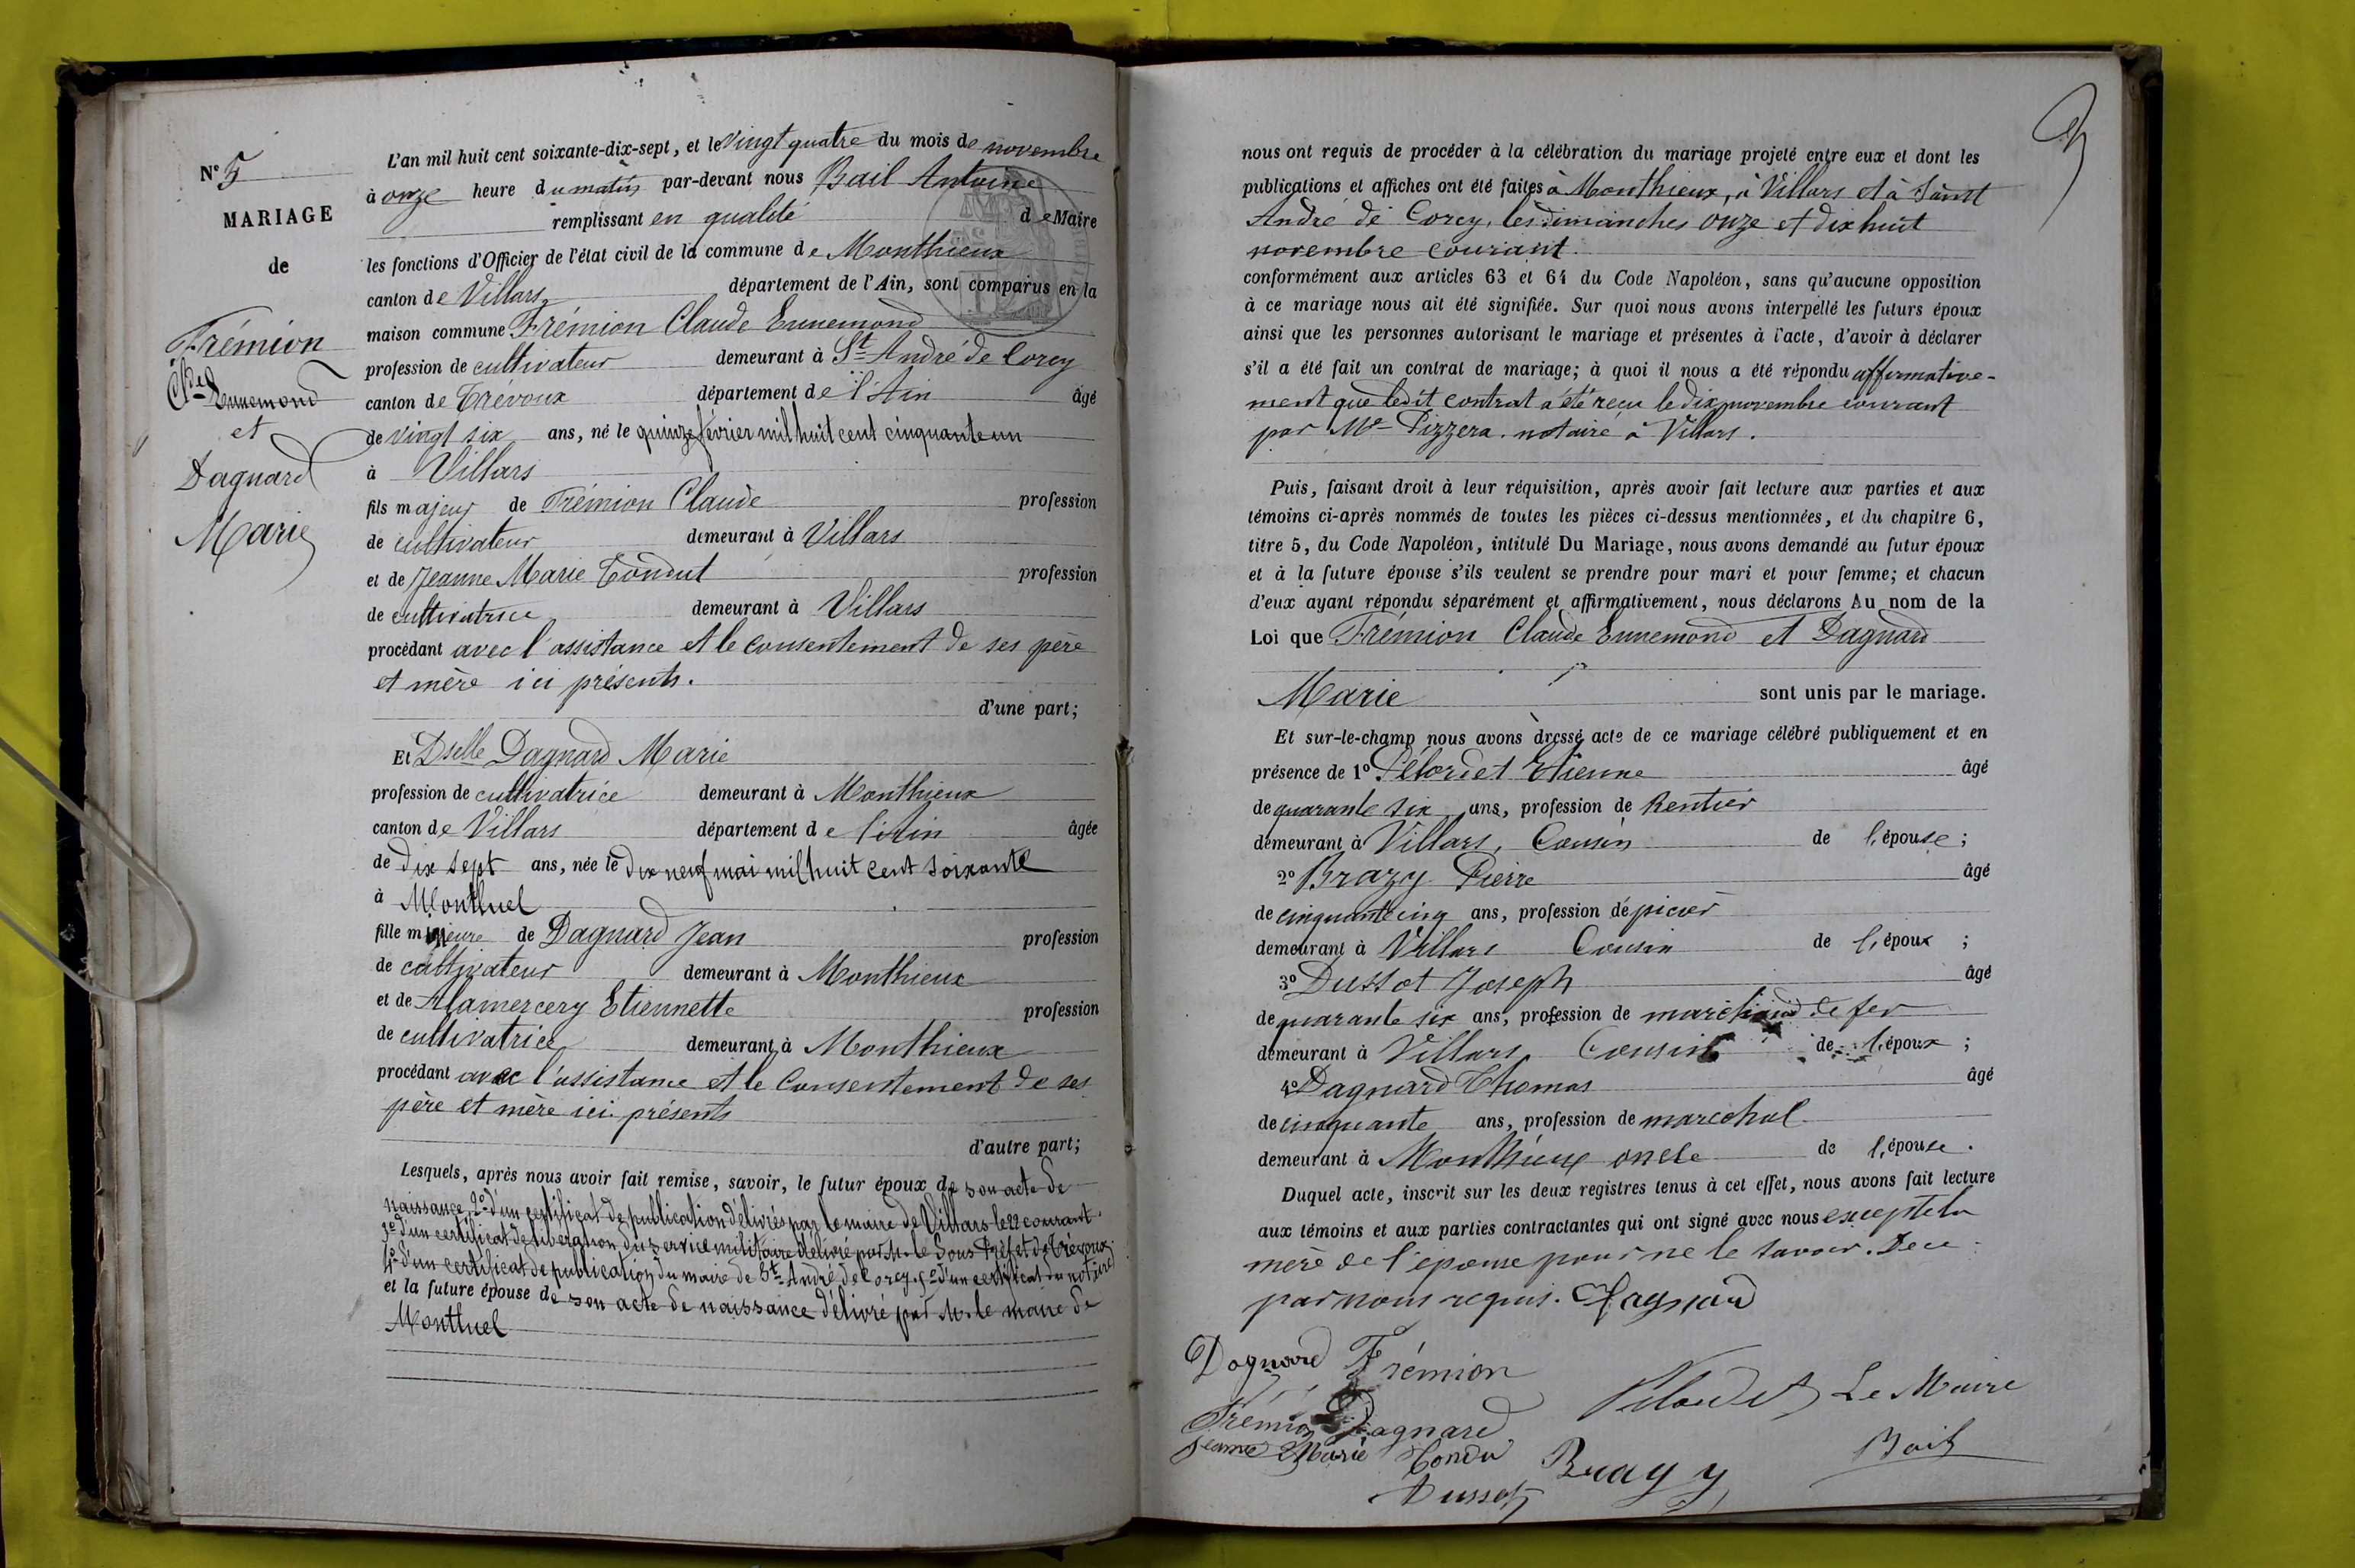 N° 5
MARIAGE
de
Frémion
Cde Ennemond
et
Dagnard
Marie
L'an mil huit cent soixante-dix-sept, et le vingt quatre du mois de novembre
à onze heure du matin par-devant nous Bail Antoine
remplissant en qualité de Maire
les fonctions d'Officier de l'état civil de la commune de Monthieux
canton de Villars département de l'Ain, sont comparus en la
maison commune Frémion Claude Ennemond
profession de cultivateur demeurant à St André de Corcy
canton de Trévoux département de l'Ain âgé
de vingt six ans, né le quinze février mil huit cent cinquante un
à Villars
fils majeur de Frémion Claude profession
de cultivateur demeurant à Villars
et de Jeanne Marie Tondut profession
de cultivatrice demeurant à Villars
procédant avec l'assistance et le consentement de ses père
et mère ici présents.
d'une part;
Et Dselle Dagnard Marie
profession de cultivatrice demeurant à Monthieux
canton de Villars département de l'Ain âgée
de dix sept ans, née le dix neuf mai mil huit cent soixante
à Montluel
fille mineure de Dagnard Jean profession
de cultivateur demeurant à Monthieux
et de Alamercery Etiennette profession
de cultivatrice demeurant à Monthieux
procédant avec l'assistance et le consentement de ses
père et mère ici présents
d'autre part;
Lesquels, après nous avoir fait remise, savoir, le futur époux de son acte de
naissance, 2° d'un certificat de publication délivrés par le maire de Villars le 22 courant.
3° d'un certificat de libération du service militaire délivré par M. le Sous Préfet de Trévoux.
4° d'un certificat de publication du maire de St André de Corcy. 5° d'un certificat du notaire
et la future épouse de son acte de naissance délivré par M. le maire de
Montluel
nous ont requis de procéder à la célébration du mariage projeté entre eux et dont les
publications et affiches ont été faites à Monthieux, à Villars et à Saint
André de Corcy, les dimanches onze et dix huit
novembre courant.
conformément aux articles 63 et 64 du Code Napoléon, sans qu'aucune opposition
à ce mariage nous ait été signifiée. Sur quoi nous avons interpellé les futurs époux
ainsi que les personnes autorisant le mariage et présentes à l'acte, d'avoir à déclarer
s'il a été fait un contrat de mariage; à quoi il nous a été répondu affirmative-
ment que ledit contrat a été reçu le dix novembre courant
par Me Pizzera. notaire à Villars.
Puis, faisant droit à leur réquisition, après avoir fait lecture aux parties et aux
témoins ci-après nommés de toutes les pièces ci-dessus mentionnées, et du chapitre 6,
titre 5, du Code Napoléon, intitulé Du Mariage, nous avons demandé au futur époux
et à la future épouse s'ils veulent se prendre pour mari et pour femme; et chacun
d'eux ayant répondu séparément et affirmativement, nous déclarons Au nom de la
Loi que Frémion Claude Ennemond et Dagnard
Marie sont unis par le mariage.
Et sur-le-champ nous avons dressé acte de ce mariage célébré publiquement et en
présence de 1° Pelordet Etienne âgé
de quarante six ans, profession de Rentier
demeurant à Villars, Cousin de l'épouse;
2° Brazy Pierre âgé
de cinquante cinq ans, profession d'épicier
demeurant à Villars Cousin de l'époux;
3° Dussot Joseph âgé
de quarante six ans, profession de marchand de fer
demeurant à Villars Cousin de l'époux;
4° Dagnard Thomas âgé
de cinquante ans, profession de maréchal
demeurant à Monthieux oncle de l'épouse.
Duquel acte, inscrit sur les deux registres tenus à cet effet, nous avons fait lecture
aux témoins et aux parties contractantes qui ont signé avec nous excepté la
mère de l'épouse pour ne le savoir. De ce
par nous requis. Dagnard
Dagnard Frémion
Pelordet Le Maire
Frémion Dagnard
Jeanne Marie Tondu Brazy Bail
Dussot